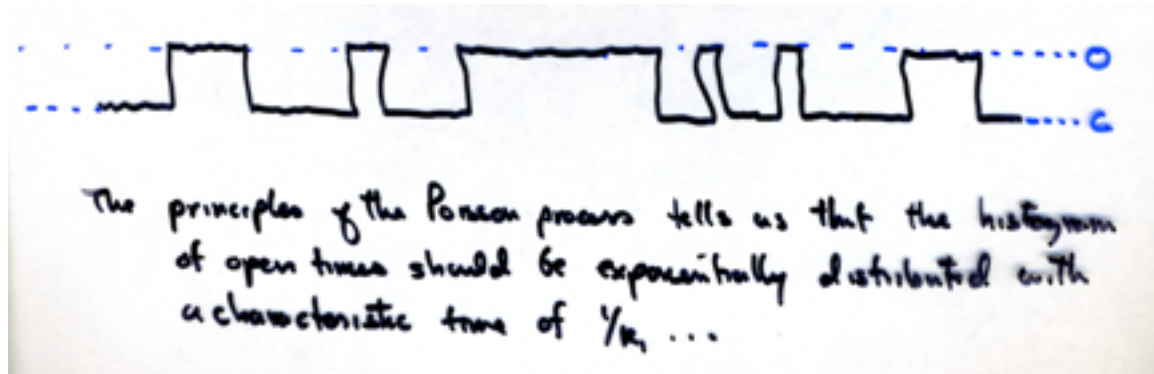 O
C
The principles of the Poisson process tells us that the histogram
of open times should be exponentially distributed with
a characteristic time of 1/k₁ ...